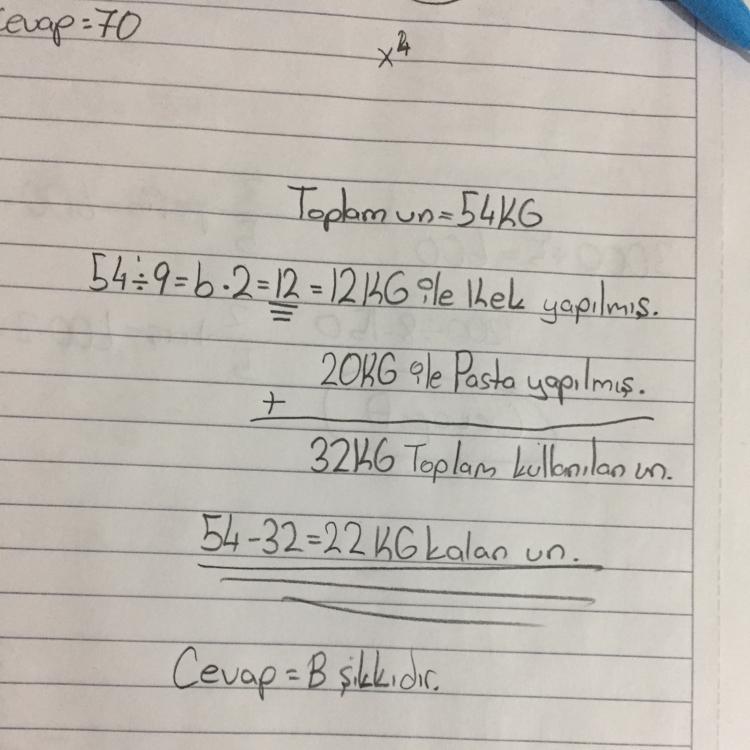 Cevap=70
x⁴
Toplam un=54KG
54÷9=6·2=12=12KG ile Kek yapılmış.
20KG ile Pasta yapılmış.
+
32KG Toplam kullanılan un.
54-32=22KG kalan un.
Cevap=B şıkkıdır.